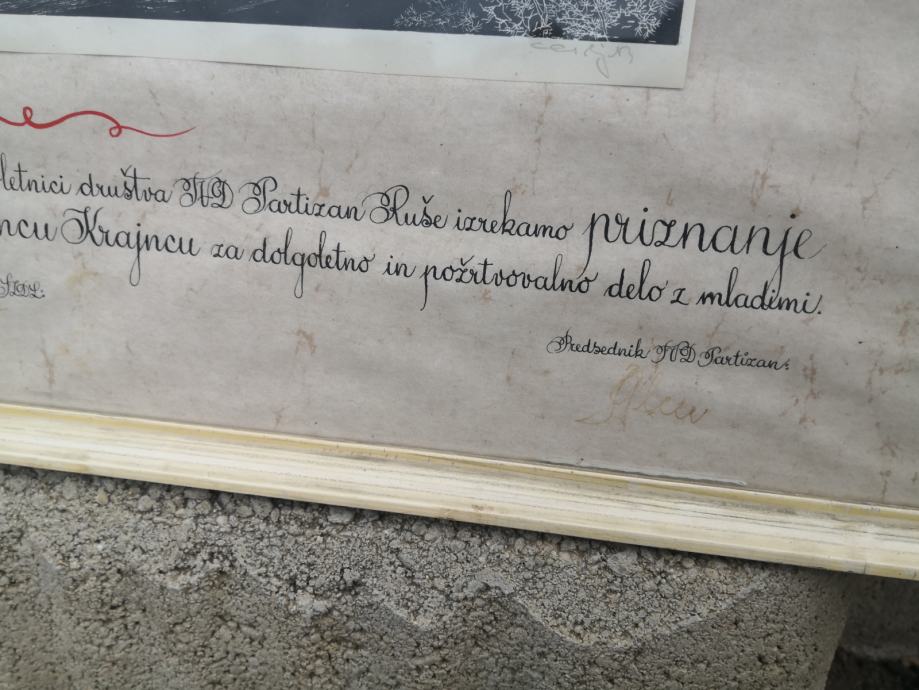 letnici društva TVD Partizan Ruše izrekamo priznanje
ncu Krajncu za dolgoletno in požrtvovalno delo z mladimi.
Predsednik TVD Partizan: